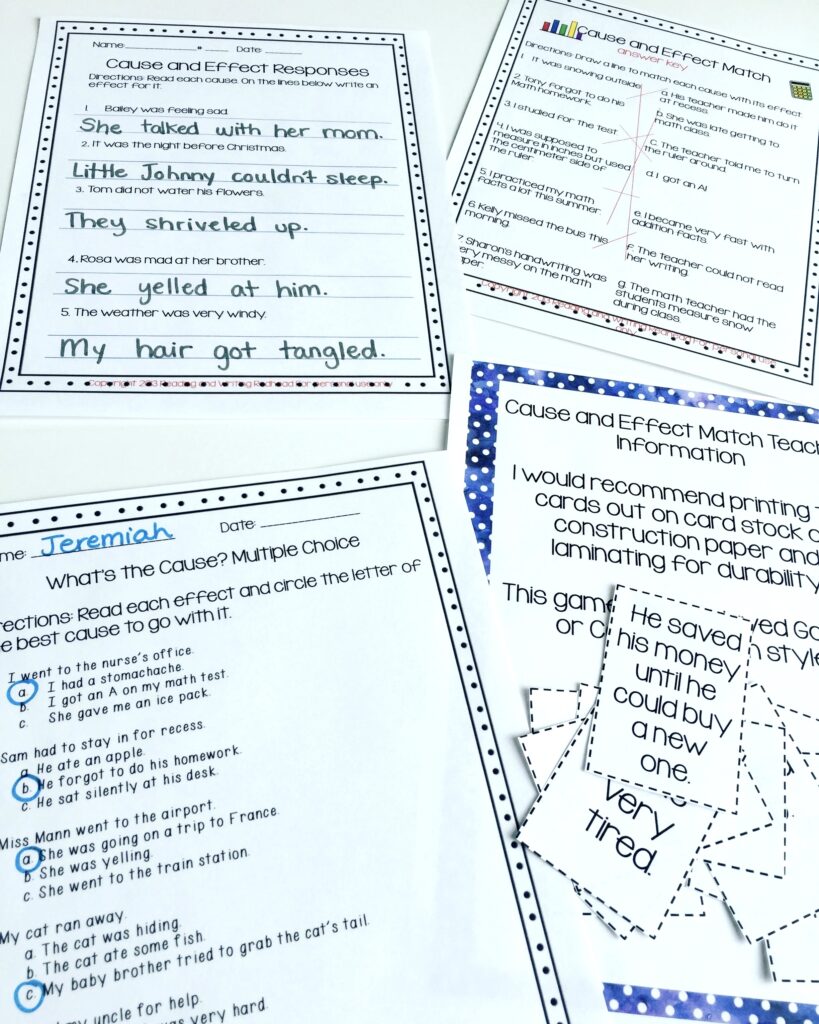 Name: # Date:
Cause and Effect Responses
Directions: Read each cause. On the lines below write an
effect for it.
1. Bailey was feeling sad.
She talked with her mom.
2. It was the night before Christmas.
Little Johnny couldn't sleep.
3. Tom did not water his flowers.
They shriveled up.
4. Rosa was mad at her brother.
She yelled at him.
5. The weather was very windy.
My hair got tangled.
Copyright 2013 Reading and Writing Redhead For personal use only
Cause and Effect Match
answer key
Directions: Draw a line to match each cause with its effect
1. It was snowing outside.
2. Tony forgot to do his
Math homework.
3. I studied for the test.
4. I was supposed to
measure in inches but used
the centimeter side of
the ruler.
5. I practiced my math
facts a lot this summer
6. Kelly missed the bus this
morning.
7. Sharon's handwriting was
very messy on the math
a. His teacher made him do it
at recess.
b. She was late getting to
math class.
c. The teacher told me to turn
the ruler around.
d. I got an A!
e. I became very fast with
addition facts.
f. The teacher could not read
her writing.
g. The math teacher had the
students measure snow
during class.
Copyright 2013 Reading and Writing Redhead For personal use
only
Cause and Effect Match Teach
Information
I would recommend printing
cards out on card stock o
construction paper and
laminating for durability
This gam yed Go
or C n style
He saved
his money
until he
could buy
a new
one.
very
tired.
me: Jeremiah Date:
What's the Cause? Multiple Choice
rections: Read each effect and circle the letter of
e best cause to go with it.
I went to the nurse's office.
a. I had a stomachache.
b. I got an A on my math test.
c. She gave me an ice pack.
Sam had to stay in for recess.
a. He ate an apple.
b. He forgot to do his homework.
c. He sat silently at his desk.
Miss Mann went to the airport.
a. She was going on a trip to France.
b. She was yelling.
c. She went to the train station.
My cat ran away.
a. The cat was hiding.
b. The cat ate some fish.
c. My baby brother tried to grab the cat's tail.
my uncle for help.
was very hard.